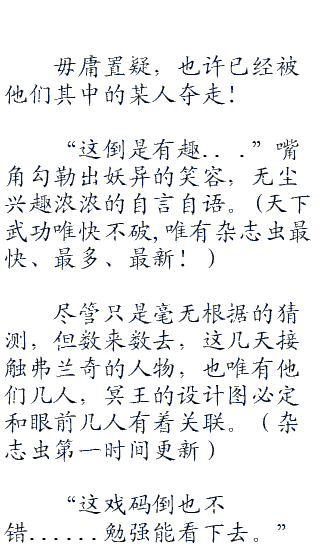 毋庸置疑，也许已经被
他们其中的某人夺走！
“这倒是有趣．．．”嘴
角勾勒出妖异的笑容，无尘
兴趣浓浓的自言自语。(天下
武功唯快不破,唯有杂志虫最
快、最多、最新！)
尽管只是毫无根据的猜
测，但数来数去，这几天接
触弗兰奇的人物，也唯有他
们几人，冥王的设计图必定
和眼前几人有着关联。（杂
志虫第一时间更新）
“这戏码倒也不
错......勉强能看下去。”